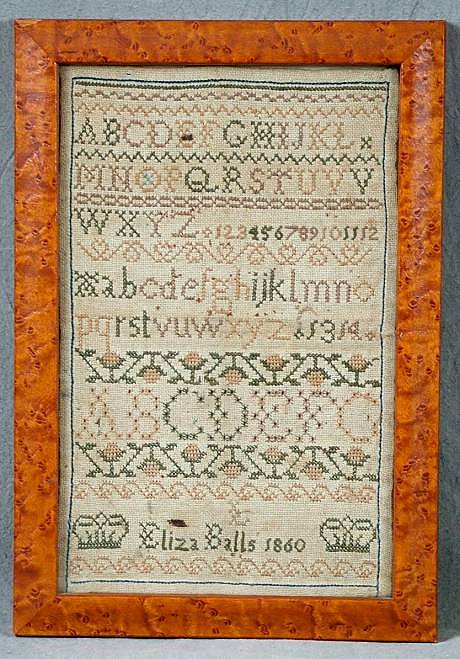 ABCDEFGHIJKL
MNOPQRSTUVV
WXYZ 123456789101112
abcdefghijklmno
pqrstvuwxyz 1314
ABCDEFG
Eliza Balls 1860